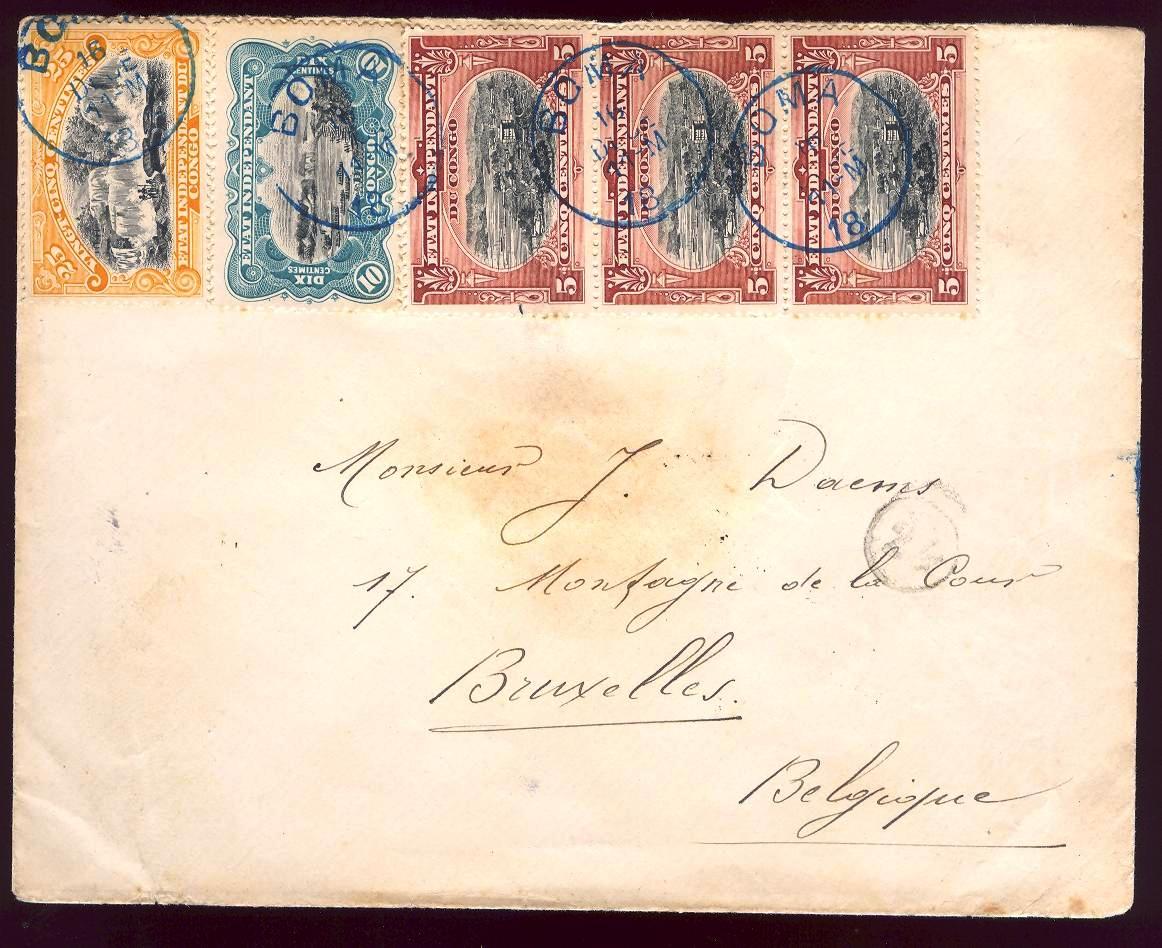 25
VINGT-CINQ CENTIMES
ETAT INDEPENDANT DU
CONGO
25
10
DIX
CENTIMES
ETAT INDEPENDANT
DU CONGO
DIX
CENTIMES
10
5
ETAT INDEPENDANT
DU CONGO
CINQ CENTIMES
5
5
ETAT INDEPENDANT
DU CONGO
CINQ CENTIMES
5
5
ETAT INDEPENDANT
DU CONGO
CINQ CENTIMES
5
BOMA
16
BOMA
BOMA
16
18
BOMA
18
Monsieur J. Daems
17. Montagne de la Cour
Bruxelles.
Belgique